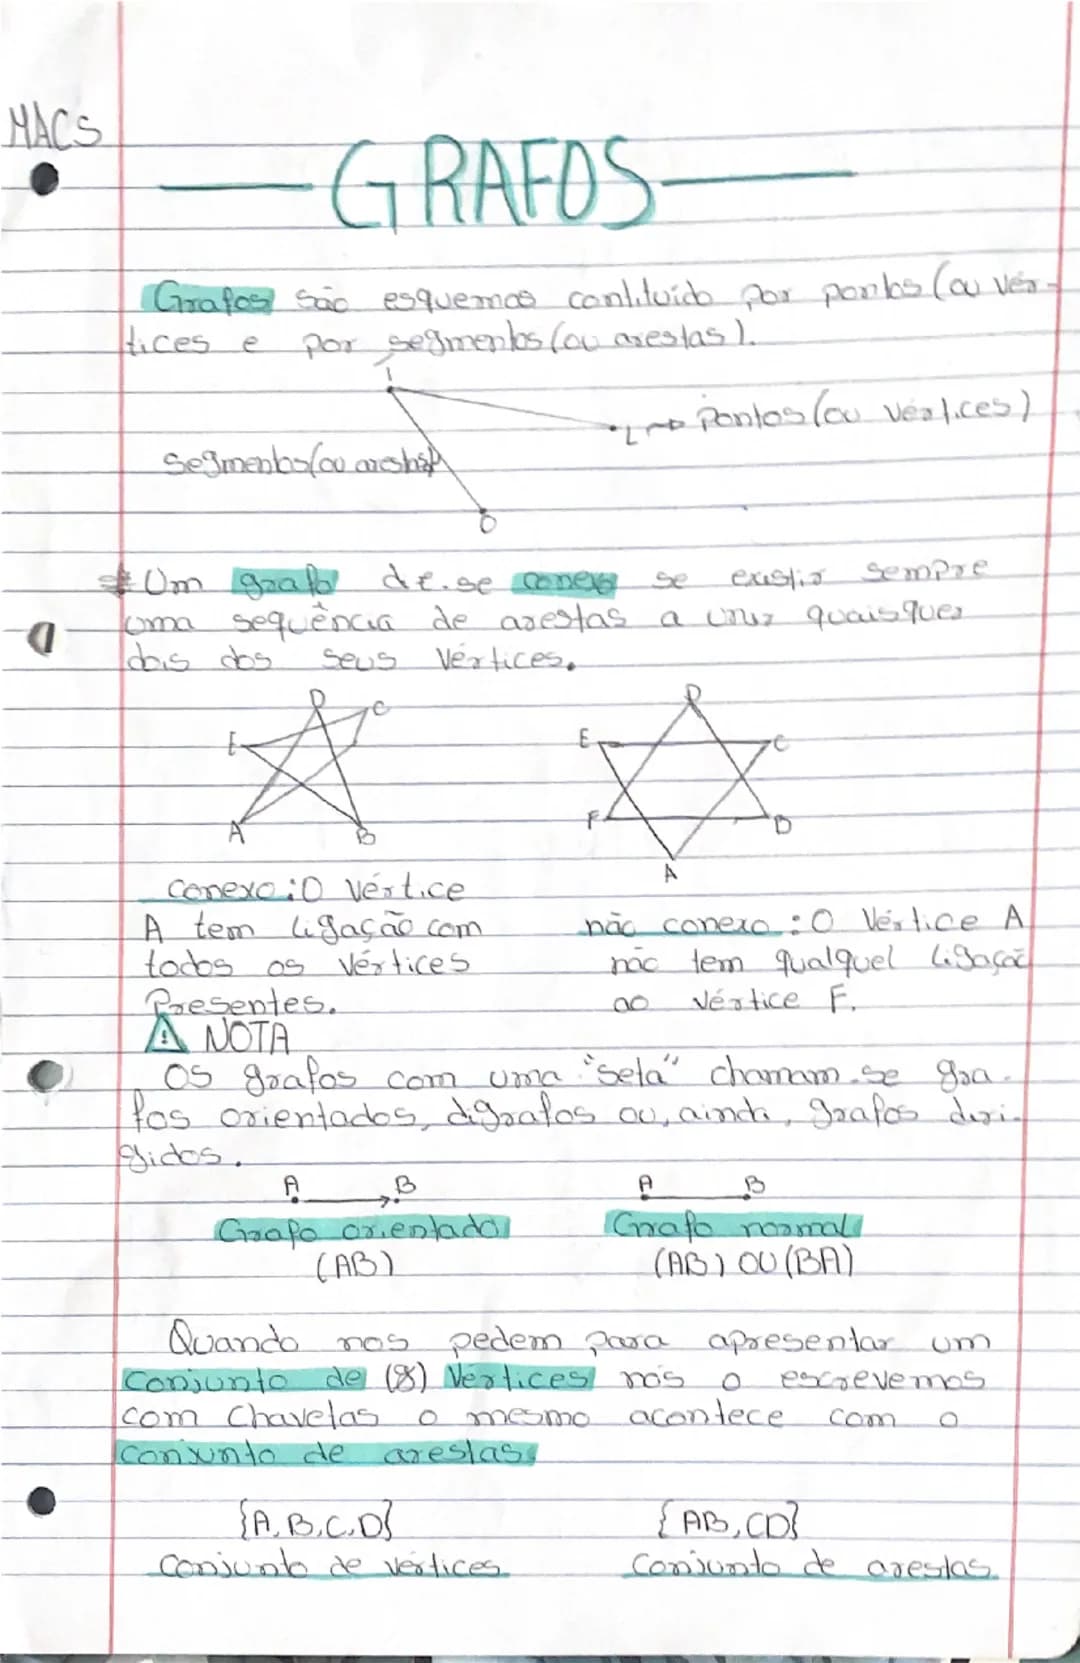 MACS
GRAFOS
Grafos são esquemas contituido por pontos (ou vér-
tices e por segmentos (ou arestas).
I
L → Pontos (ou vértices)
Segmentos (ou arestas)
O
* Um grafo diz-se conexo se existir sempre
uma sequência de arestas a unir quaisquer
dois dos seus vértices.
D C D
E E C
F B
A B A
conexo: O vértice
A tem ligação com não conexo: O vértice A
todos os vértices não tem qualquel ligação
Presentes. ao vértice F.
NOTA
OS grafos com uma "seta" chamam-se gra-
fos orientados, digrafos ou, ainda, grafos diri-
gidos.
A B A B
Grafo orientado Grafo normal
(AB) (AB) OU (BA)
Quando nos pedem para apresentar um
conjunto de vértices nós o escrevemos
com chavetas o mesmo acontece com o
conjunto de arestas.
{A, B, C, D} {AB, CD}
Conjunto de vértices Conjunto de arestas